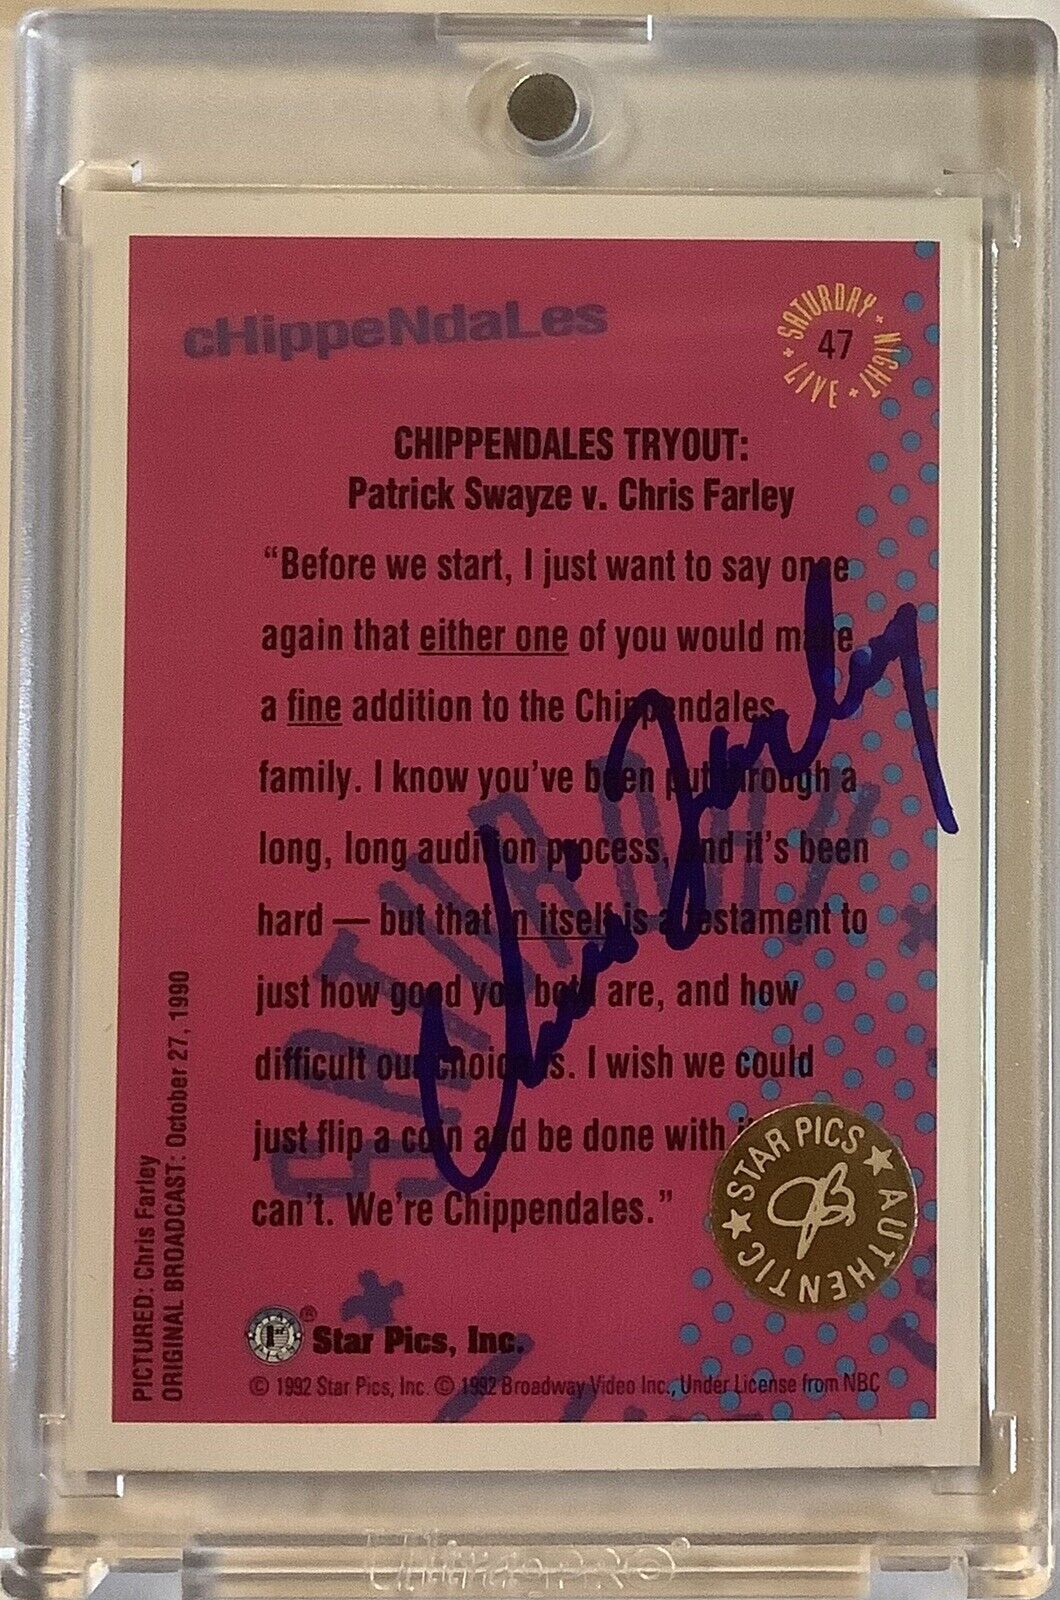 cHippeNdaLes
SATURDAY NIGHT LIVE
47
CHIPPENDALES TRYOUT:
Patrick Swayze v. Chris Farley
“Before we start, I just want to say once
again that either one of you would make
a fine addition to the Chippendales
family. I know you’ve been put through a
long, long audition process, and it’s been
hard — but that in itself is a testament to
just how good you both are, and how
difficult our choice is. I wish we could
just flip a coin and be done with
can’t. We’re Chippendales.”
Chris Farley
SATURDAY
PICTURED: Chris Farley
ORIGINAL BROADCAST: October 27, 1990
STAR PICS AUTHENTIC
Star Pics, Inc.
© 1992 Star Pics, Inc. © 1992 Broadway Video Inc., Under License from NBC